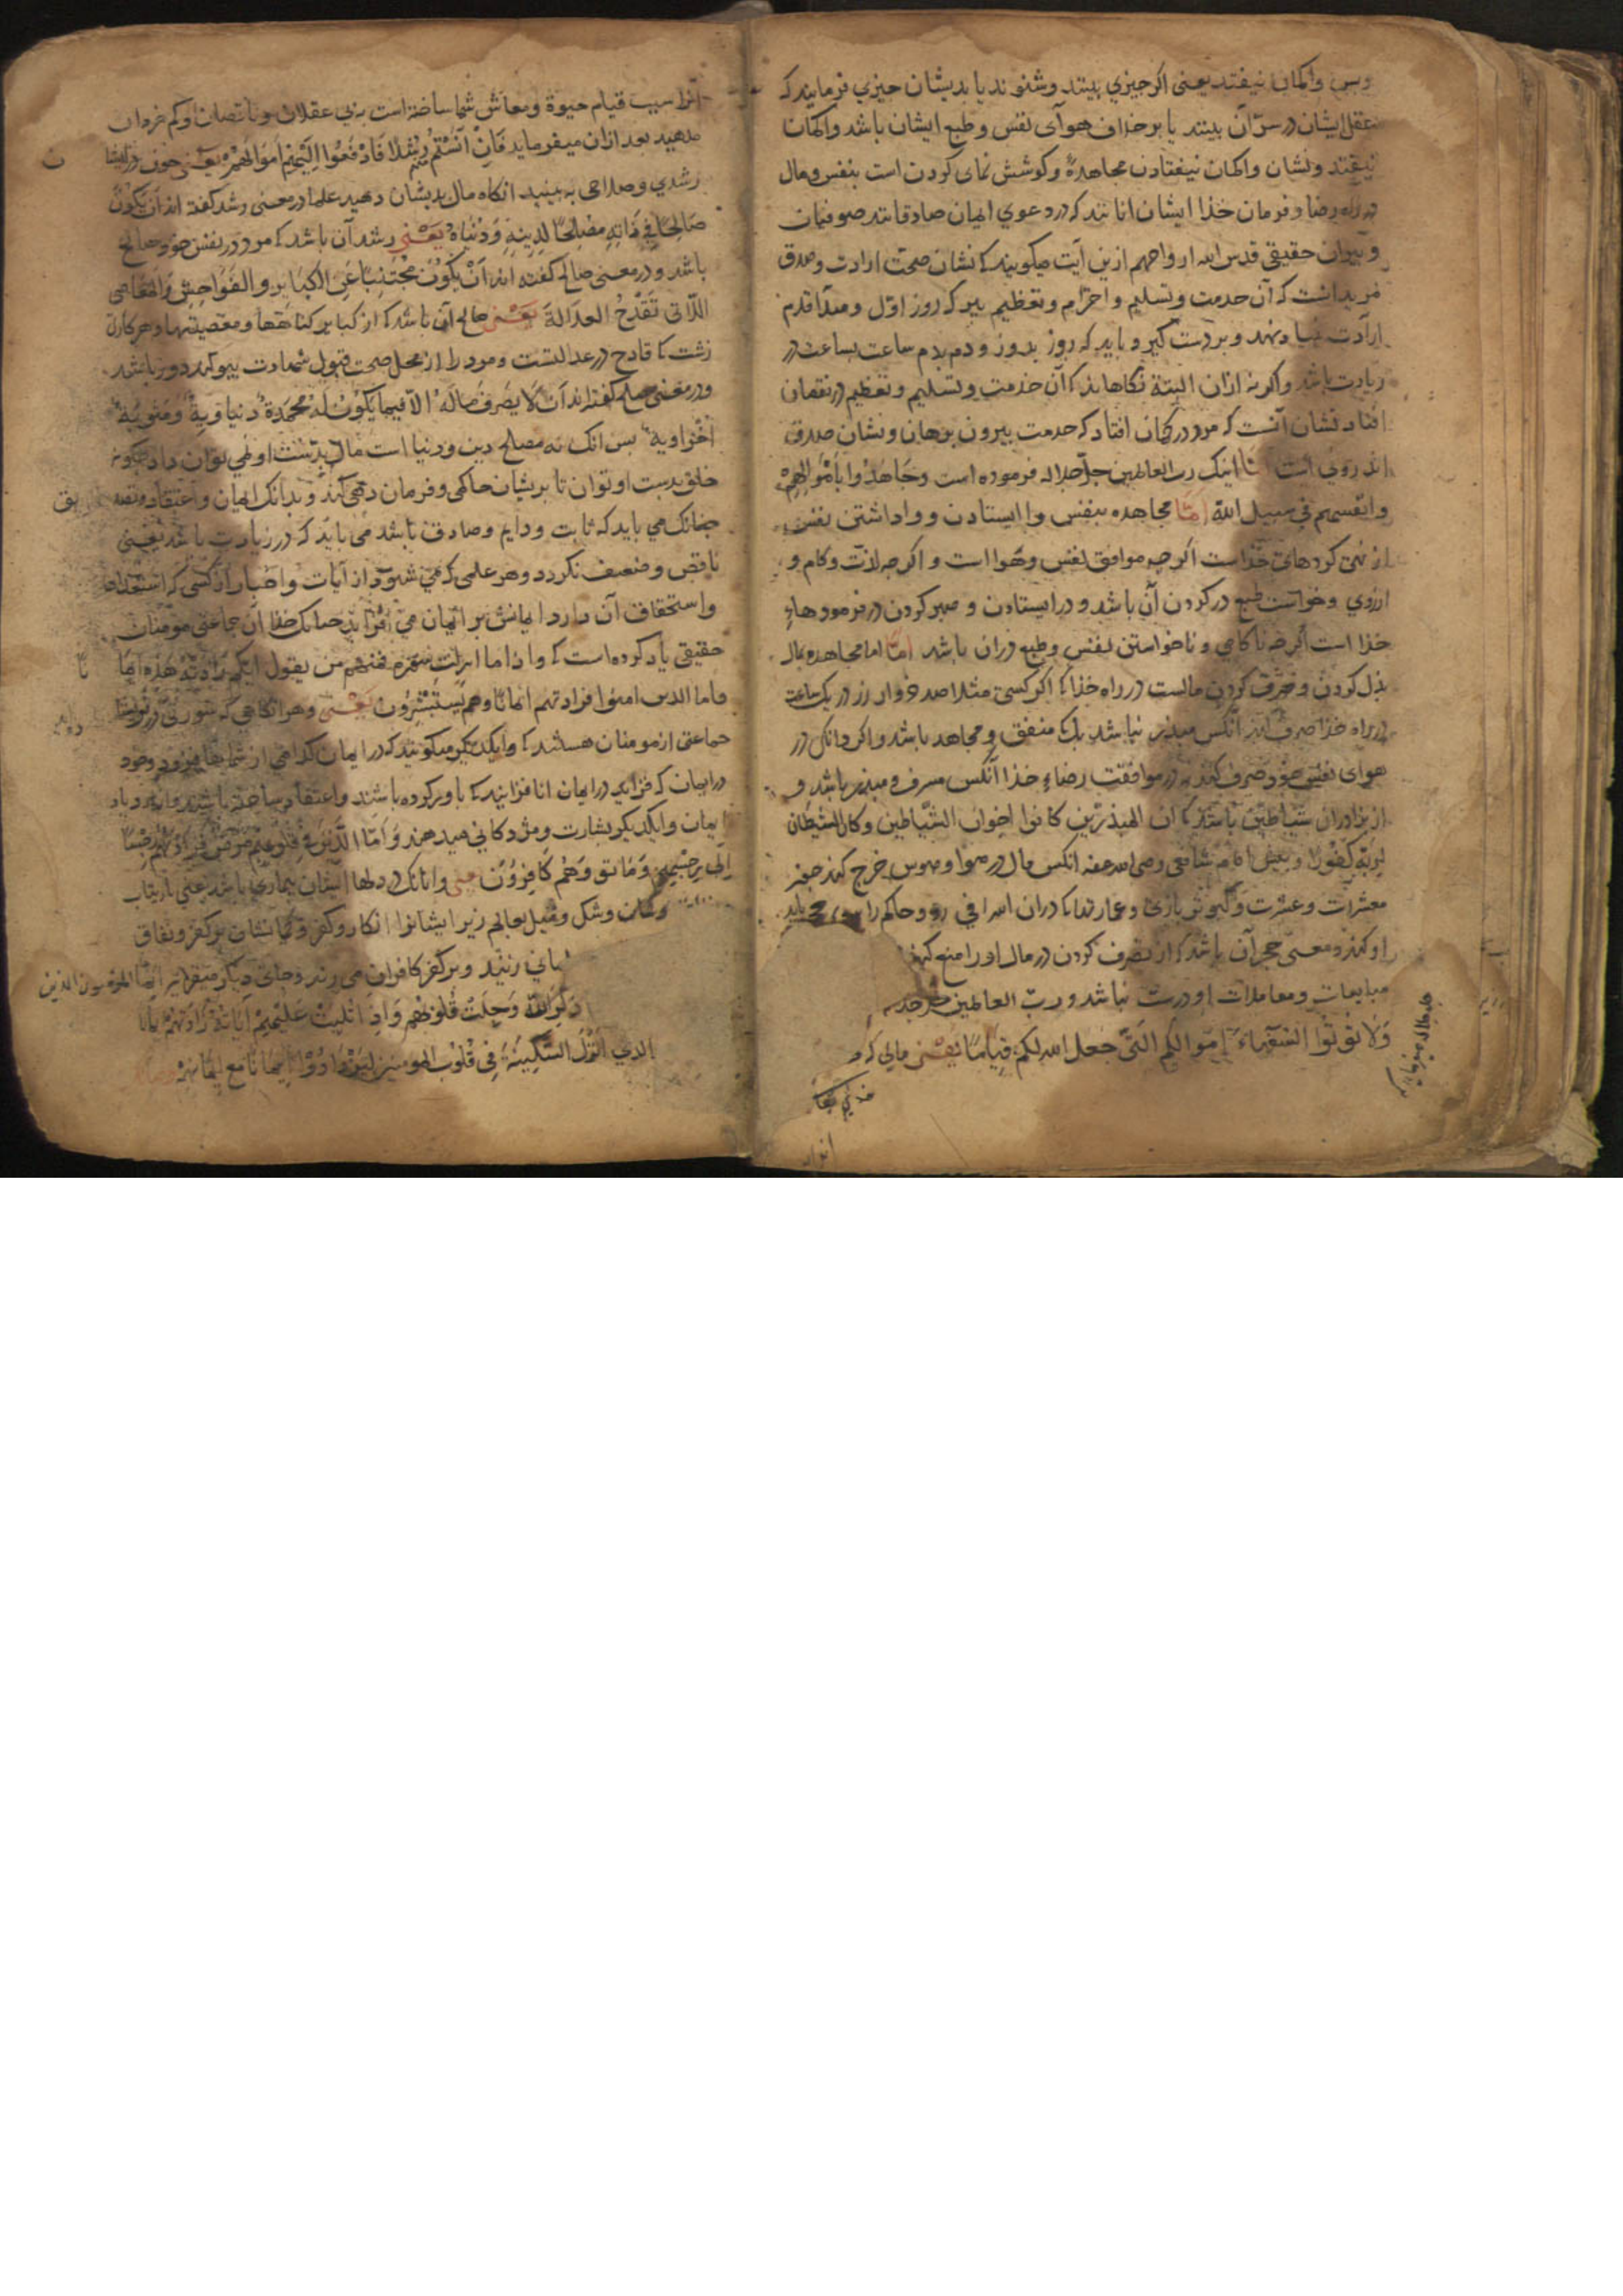 وبس وا کمان نیفتد یعنی اکر جیزی بینند وشنوند یا بدیشان جیزی فرمایند که
عقل ایشان در سرّ آن بیند یا بر خلاف هوآی نفس وطبع ایشان باشد وا کمان
نیفتند ونشان وا کمان نیفتادن مجاهدهٔ وکوشش نمای کردن است بنفس ومال
در راه رضا وفرمان خذا ایشان انانند که در دعوی ایمان صادقانند صوفیان
و پیران حقیقی قدس الله ارواحهم ازین آیت میکویند کا نشان صحت ارادت وصدق
مرید انست که آن خدمت وتسلیم و احترام وتعظیم پیر که روز اوّل و مبدأ قدم
ارآدت بنهاد ونهد وبر دست کیرد باید که روز بروز ودم بدم ساعت بساعت در
زیادت باشد واکر نه ازان البتة نکاهاند کا آن خدمت وتسلیم وتعظیم در نقصان
افتاد نشان آنست که مرد در کمان افتاد که خدمت بیرون برهان ونشان صدق
اندرونی است امّا اینک رب العالمین جلّ جلاله فرموده است وجَاهَدُوا بِاَمْوَالِهِمْ
وانفسهم فی سبیل الله امّا مجاهده بنفس وا ایستادن و واداشتن نفس
از نهی کردهای خذاست اکر چه موافق نفس وهوا است و اکر چه لذت وکام و
ارزوی وخواست طبع در کردن آن باشد و در ایستادن و صبر کردن در فرمودهاء
خذا است اکر چه ناکامی و ناخواستن نفس وطبع دران باشد امّا اما مجاهده بمال
بذل کردن وصرف کردن مالست در راه خذا کا اکر کسی مثلا صد خروار زر در یک ساعت
در راه خذا صرف کند آنکس مبذر نباشد بلک منفق ومجاهد باشد واکر دانکی در
هوای نفس خود صرف کند نه در موافقت رضاء خذا آنکس مسرف ومبذر باشد و
از برادران شیاطین باشد کا ان المبذرین کانوا اخوان الشیاطین وکان الشیطان
لربه کفورا و بقول امام شافعی رضی الله عنه انکس مال در هوا وهوس خرج کند جون
معشرات وعشرت وکبوتر بازی وعمارتها کا دران اسرافی رود وحاکم را حجر باید
او کند ومعنی حجر آن باشد که از تصرف کردن در مال او را منع کند
مبایعات ومعاملات او درست نباشد ورب العالمین جل جلاله
وَلَا تُؤتُوا السُّفَهَاءَ اَمْوَالَکُمُ الَّتِی جَعَلَ الله لکم قِیَامًا یعنی مالی که
خدای تعا
آنرا سبب قیام حیوة ومعاش شما ساخته است به بی عقلان وناقصان وکم خردان
مدهید بعد ازان میفرماید فَاِنْ آنَسْتُمْ مِنْهُمْ رُشْدًا فَادْفَعُوْا اِلَیْهِمْ اَمْوَالَهُمْ یعنی جون در ایشا
رشدی وصلاحی به بینید انکاه مال بدیشان دهید علما در معنی رشد کفته اند اَن یَکُونَ
صَالِحًا فِی ذَاتِهِ مُصْلِحًا لِدِینِهِ وَدُنْیَاهُ یعنی رشد آن باشد که مرد در نفس خود صالح
باشد و در معنی صالح کفته اند اَنْ یَکُوْنَ مُجْتَنِبًا عَنِ الْکَبَایِرِ وَالفَوَاحِشِ وَالْمَعَاصِی
اللَّاتِی تَقْدَحُ العدَالَةَ یعنی صالح آن باشد کا از کبایر کناهها ومعصیتها وهر کاری
زشت کا قادح در عدالتست ومرد را از محل صحت قبول شهادت بیرون کند دور باشد
ودر معنی مصلح کفته اند اَنْ لَا یَصْرِفَ مَالَهُ الّا فیما یَکُوْنُ لَهُ مَحْمَدَةٌ دُنْیَاوِیَةٌ وَمَثُوبَةٌ
اُخْرَاوِیَة بس انک نه مصلح دین ودنیا است مال بدست او نمی توان داد جکونه
خلق بدست او توان تا بریشان حاکمی وفرمان دهی کند وبدانک ایمان واعتقاد وتصدیق
جنانک می باید که ثابت ودایم وصادق باشد می باید که در زیادت باشد یعنی
ناقص وضعیف نکردد وهر علمی که می شنود از آیات واخبار از کسی که استعداد
واستحقاق آن دارد ایمانش بر ایمان می افزاید جنانک خدا آن جماعتی مؤمنان
حقیقی یاد کرده است کا واذا ما انزلت سورة فمنهم من یقول ایکم زادته هذه ایمانا
فاما الذین امنوا فزادتهم ایمانا وهم یَسْتَبْشِرُون یعنی وهر انکاهی که سورتی
جماعتی از مومنان هستند کا وا یکدیکر میکویند که در ایمان کدامی از شما بیفزود وخود
در ایمان که فزاید در ایمان انا فزایند کا باور کرده باشند واعتقاد ساخته باشند
ایمان وا یکدیکر بشارت ومژدکانی میدهند وَاَمَّا الَّذینَ فِی قُلُوبِهِمْ مَرَضٌ فَزَادَتْهُمْ رِجْسًا
اِلَی رِجْسِهِمْ وَمَاتُوا وَهُمْ کَافِرُوْنَ یعنی وانانک در دلها ایشان بیماری باشد یعنی بارتیاب
وکمان وشک
می زیند وبر کفر کافران می رند وجای دیکر میفرماید انما المومنون الذین
ذُکِرَ اللّٰهُ وَجِلَتْ قُلُوبُهُم وَاِذَا تُلِیَتْ عَلَیْهِمْ آیَاتُهُ زَادَتْهُمْ اِیمَانًا
الذی اَنْزَلَ السَّکِینَةَ فِی قُلُوْبِ المومنین لِیَزْدَادُوْا اِیمَانًا مَعَ اِیْمَانِهِمْ